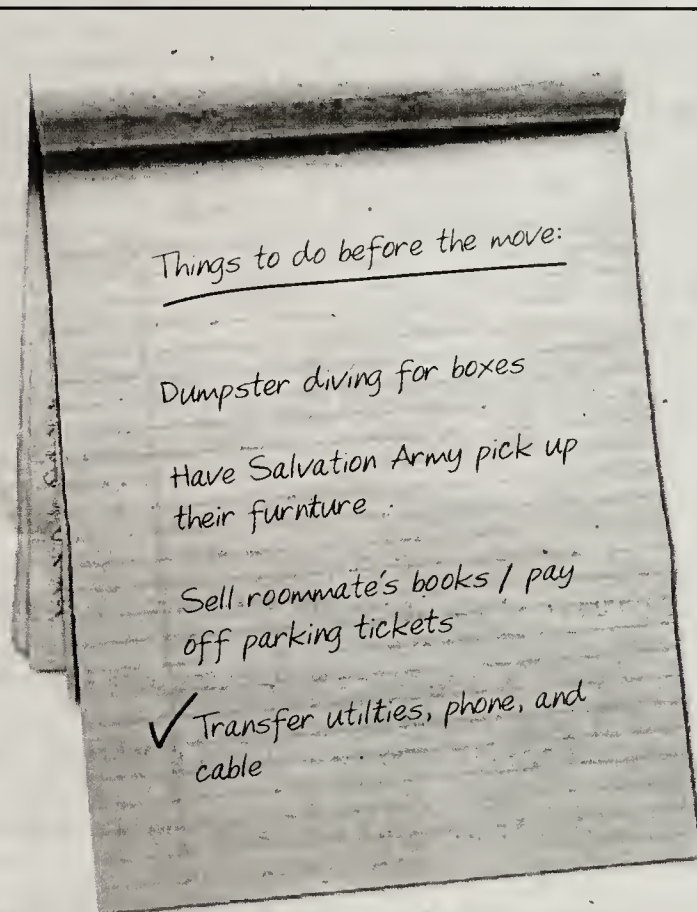 Things to do before the move:
Dumpster diving for boxes
Have Salvation Army pick up
their furnture
Sell roommate's books / pay
off parking tickets
✓ Transfer utilties, phone, and
cable